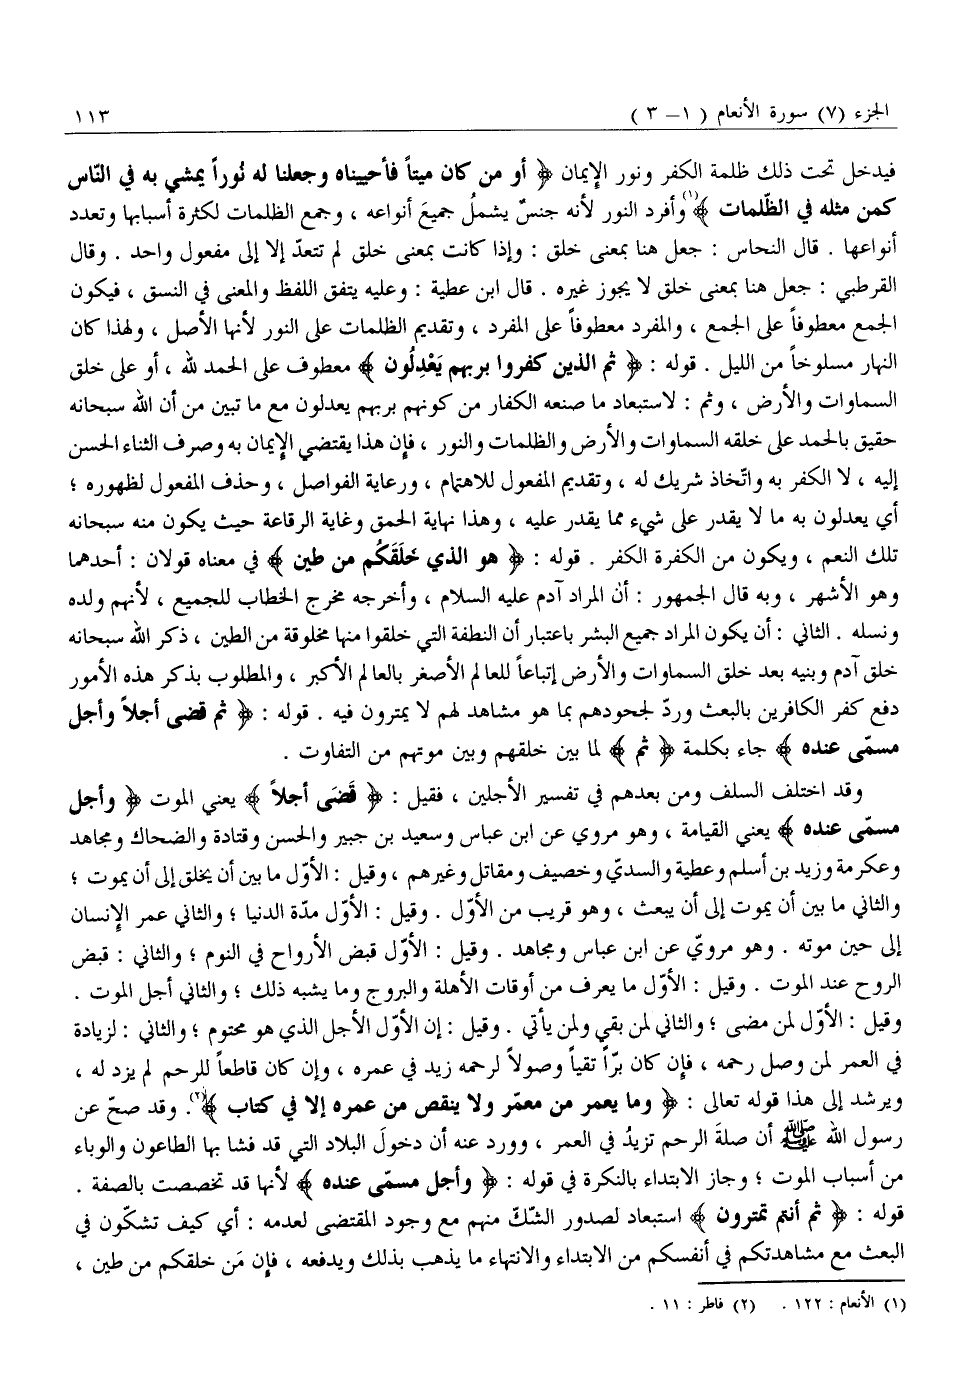 الجزء (٧) سورة الأنعام ( ١ – ٣ ) ١١٣
فيدخل تحت ذلك ظلمة الكفر ونور الإِيمان ﴿ أو من كان ميتاً فأحييناه وجعلنا له نُوراً يمشي به في النّاس
كمن مثله في الظّلمات ﴾(١) وأفرد النور لأنه جنسٌ يشملُ جميعَ أنواعه ، وجمع الظلمات لكثرة أسبابها وتعدد
أنواعها . قال النحاس : جعل هنا بمعنى خلق : وإذا كانت بمعنى خلق لم تتعدّ إلا إلى مفعول واحد . وقال
القرطبي : جعل هنا بمعنى خلق لا يجوز غيره . قال ابن عطية : وعليه يتفق اللفظ والمعنى في النسق ، فيكون
الجمع معطوفاً على الجمع ، والمفرد معطوفاً على المفرد ، وتقديم الظلمات على النور لأنها الأصل ، ولهذا كان
النهار مسلوخاً من الليل . قوله : ﴿ ثم الذين كفروا بربهم يَعْدِلُون ﴾ معطوف على الحمد لله ، أو على خلق
السماوات والأرض ، وثم : لاستبعاد ما صنعه الكفار من كونهم بربهم يعدلون مع ما تبين من أن الله سبحانه
حقيق بالحمد على خلقه السماوات والأرض والظلمات والنور ، فإن هذا يقتضي الإِيمان به وصرف الثناء الحسن
إليه ، لا الكفر به واتّخاذ شريك له ، وتقديم المفعول للاهتمام ، ورعاية الفواصل ، وحذف المفعول لظهوره ؛
أي يعدلون به ما لا يقدر على شيء مما يقدر عليه ، وهذا نهاية الحمق وغاية الرقاعة حيث يكون منه سبحانه
تلك النعم ، ويكون من الكفرة الكفر . قوله : ﴿ هو الذي خَلَقَكُم من طين ﴾ في معناه قولان : أحدهما
وهو الأشهر ، وبه قال الجمهور : أن المراد آدم عليه السلام ، وأخرجه مخرج الخطاب للجميع ، لأنهم ولده
ونسله . الثاني : أن يكون المراد جميع البشر باعتبار أن النطفة التي خلقوا منها مخلوقة من الطين ، ذكر الله سبحانه
خلق آدم وبنيه بعد خلق السماوات والأرض إتباعاً للعالم الأصغر بالعالم الأكبر ، والمطلوب بذكر هذه الأمور
دفع كفر الكافرين بالبعث وردّ لجحودهم بما هو مشاهد لهم لا يمترون فيه . قوله : ﴿ ثم قضى أجلاً وأجل
مسمّى عنده ﴾ جاء بكلمة ﴿ ثم ﴾ لما بين خلقهم وبين موتهم من التفاوت .
وقد اختلف السلف ومن بعدهم في تفسير الأجلين ، فقيل : ﴿ قَضَى أجلاً ﴾ يعني الموت ﴿ وأجل
مسمّى عنده ﴾ يعني القيامة ، وهو مروي عن ابن عباس وسعيد بن جبير والحسن وقتادة والضحاك ومجاهد
وعكرمة وزيد بن أسلم وعطية والسديّ وخصيف ومقاتل وغيرهم ، وقيل : الأوّل ما بين أن يخلق إلى أن يموت ؛
والثاني ما بين أن يموت إلى أن يبعث ، وهو قريب من الأوّل . وقيل : الأوّل مدّة الدنيا ؛ والثاني عمر الإِنسان
إلى حين موته . وهو مرويّ عن ابن عباس ومجاهد . وقيل : الأوّل قبض الأرواح في النوم ؛ والثاني : قبض
الروح عند الموت . وقيل : الأوّل ما يعرف من أوقات الأهلة والبروج وما يشبه ذلك ؛ والثاني أجل الموت .
وقيل : الأوّل لمن مضى ؛ والثاني لمن بقي ولمن يأتي . وقيل : إن الأوّل الأجل الذي هو محتوم ؛ والثاني : لزيادة
في العمر لمن وصل رحمه ، فإن كان برّاً تقياً وصولاً لرحمه زيد في عمره ، وإن كان قاطعاً للرحم لم يزد له ،
ويرشد إلى هذا قوله تعالى : ﴿ وما يعمر من معمّر ولا ينقص من عمره إلا في كتاب ﴾(٢). وقد صحّ عن
رسول الله ﷺ أن صلةَ الرحم تزيدُ في العمر ، وورد عنه أن دخولَ البلاد التي قد فشا بها الطاعون والوباء
من أسباب الموت ؛ وجاز الابتداء بالنكرة في قوله : ﴿ وأجل مسمّى عنده ﴾ لأنها قد تخصصت بالصفة .
قوله : ﴿ ثم أنتم تمترون ﴾ استبعاد لصدور الشكّ منهم مع وجود المقتضى لعدمه : أي كيف تشكّون في
البعث مع مشاهدتكم في أنفسكم من الابتداء والانتهاء ما يذهب بذلك ويدفعه ، فإن مَن خلقكم من طين ،
(١) الأنعام : ١٢٢ . (٢) فاطر : ١١ .